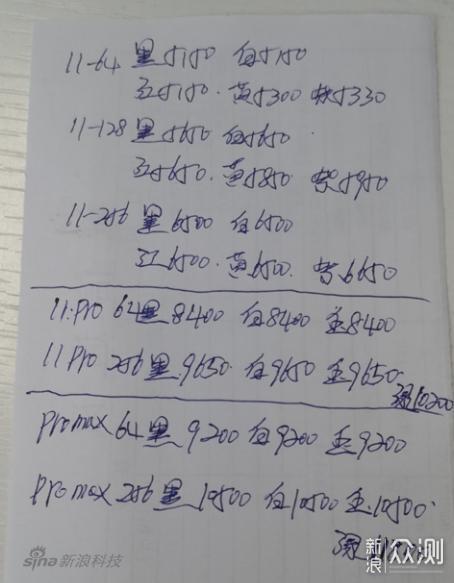 11-64 黑5150 白5150
红5150. 黄5300 紫5330
11-128 黑5650 白5650
红5650. 黄5850 紫5950
11-256 黑6500 白6500
红6500. 黄6500. 紫6650
11.Pro 64黑8400 白8400 金8400
11 Pro 256黑.9650. 白9650 金9650.
绿10200
Promax 64黑9200 白9200 金9200
Promax 256黑10500 白10500 金.10500.
绿
sina新浪科技
新浪众测